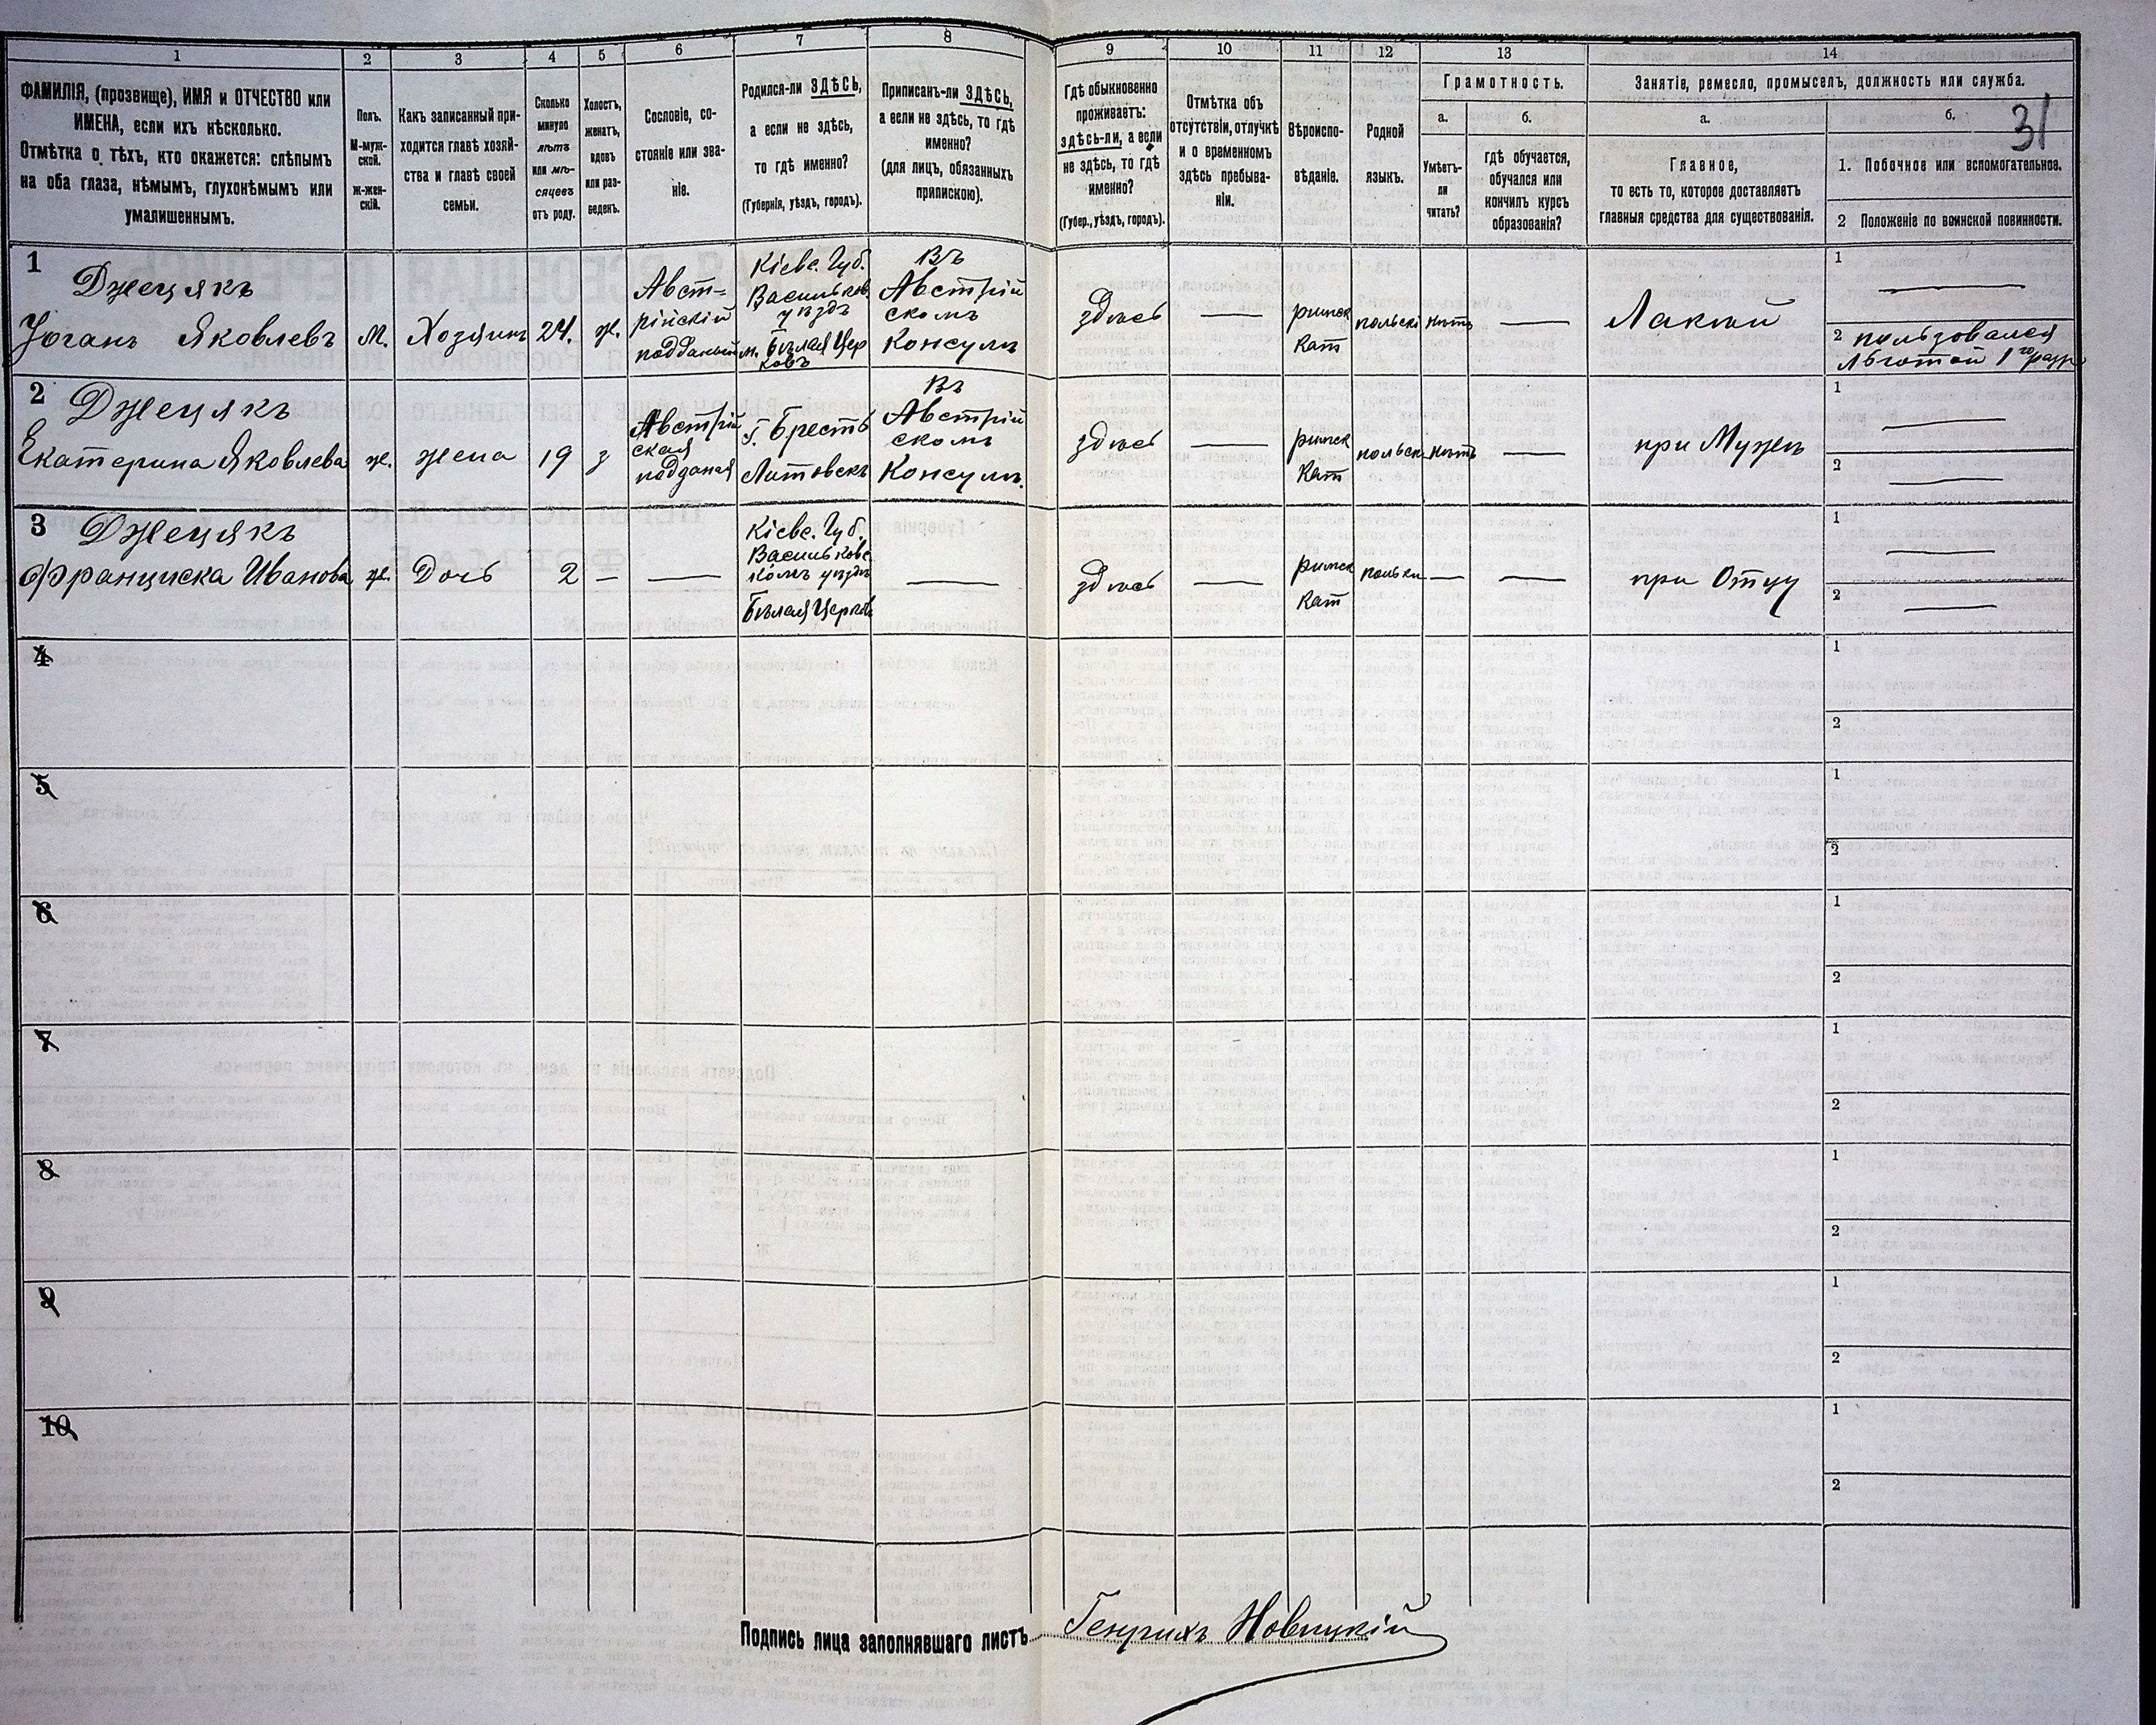 1 2 3 4 5 6 7 8 9 10 11 12 13 14
ФАМИЛІЯ, (прозвище), ИМЯ и ОТЧЕСТВО или
ИМЕНА, если ихъ нѣсколько.
Отмѣтка о тѣхъ, кто окажется: слѣпымъ
на оба глаза, нѣмымъ, глухонѣмымъ или
умалишеннымъ.
Полъ.
М-муж-
ской.
ж-жен-
скій.
Какъ записанный при-
ходится главѣ хозяй-
ства и главѣ своей
семьи.
Сколько
минуло
лѣтъ
или мѣ-
сяцевъ
отъ роду.
Холостъ,
женатъ,
вдовъ
или раз-
веденъ.
Сословіе, со-
стояніе или зва-
ніе.
Родился-ли ЗДѢСЬ,
а если не здѣсь,
то гдѣ именно?
(Губернія, уѣздъ, городъ).
Приписанъ-ли ЗДѢСЬ,
а если не здѣсь, то гдѣ
именно?
(для лицъ, обязанныхъ
припискою).
Гдѣ обыкновенно
проживаетъ:
здѣсь-ли, а если
не здѣсь, то гдѣ
именно?
(Губер., уѣздъ, городъ).
Отмѣтка объ
отсутствіи, отлучкѣ
и о временномъ
здѣсь пребыва-
ніи.
Вѣроиспо-
вѣданіе.
Родной
языкъ.
Грамотность.
а.
Умѣетъ-
ли
читать?
б.
гдѣ обучается,
обучался или
кончилъ курсъ
образованія?
Занятіе, ремесло, промыселъ, должность или служба.
а.
Главное,
то есть то, которое доставляетъ
главныя средства для существованія.
б.
31
1. Побочное или вспомогательное.
2 Положеніе по воинской повинности.
1
Джецякъ
Йоганъ Яковлевъ
М.
Хозяинъ
24.
ж.
Авст=
рійскій
подданый
Кіевс. Губ.
Васильков
уѣздъ
м. Бѣлая Цер
ковъ
Въ
Австрій
скомъ
Консул
здѣсь
римск
Кат
польскі
нѣтъ
Лакей
1
2 пользовался
льготой 1го разр
2
Джецякъ
Екатерина Яковлева
ж.
жена
19
з
Австрій
ская
подданая
г. Брестъ
Литовскъ
Въ
Австрій
скомъ
Консул.
здѣсь
римск
Кат
польск
нѣтъ
при Мужѣ
1
2
3
Джецякъ
Франциска Иванова
ж.
Дочь
2
Кіевс. Губ.
Васильковс
комъ уѣздѣ
Бѣлая Церковь
здѣсь
римск
Кат
польски
при Отцу
1
2
4
1
2
5
1
2
6
1
2
7
1
2
8
1
2
9
1
2
10
1
2
Подпись лица заполнявшаго листъ Генрихъ Новицкій